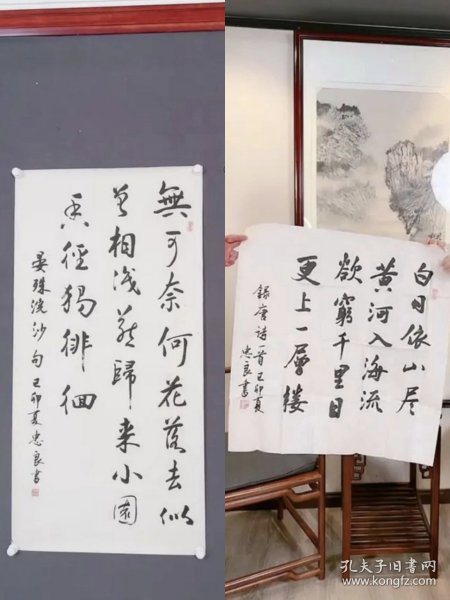 無可奈何花落去似
曾相識燕歸来小園
香徑獨徘徊
晏殊浣沙句己卯夏忠良書
白日依山尽
黄河入海流
欲窮千里目
更上一層楼
録唐詩一首己卯夏
忠良書
孔夫子旧书网
www.kongfz.com